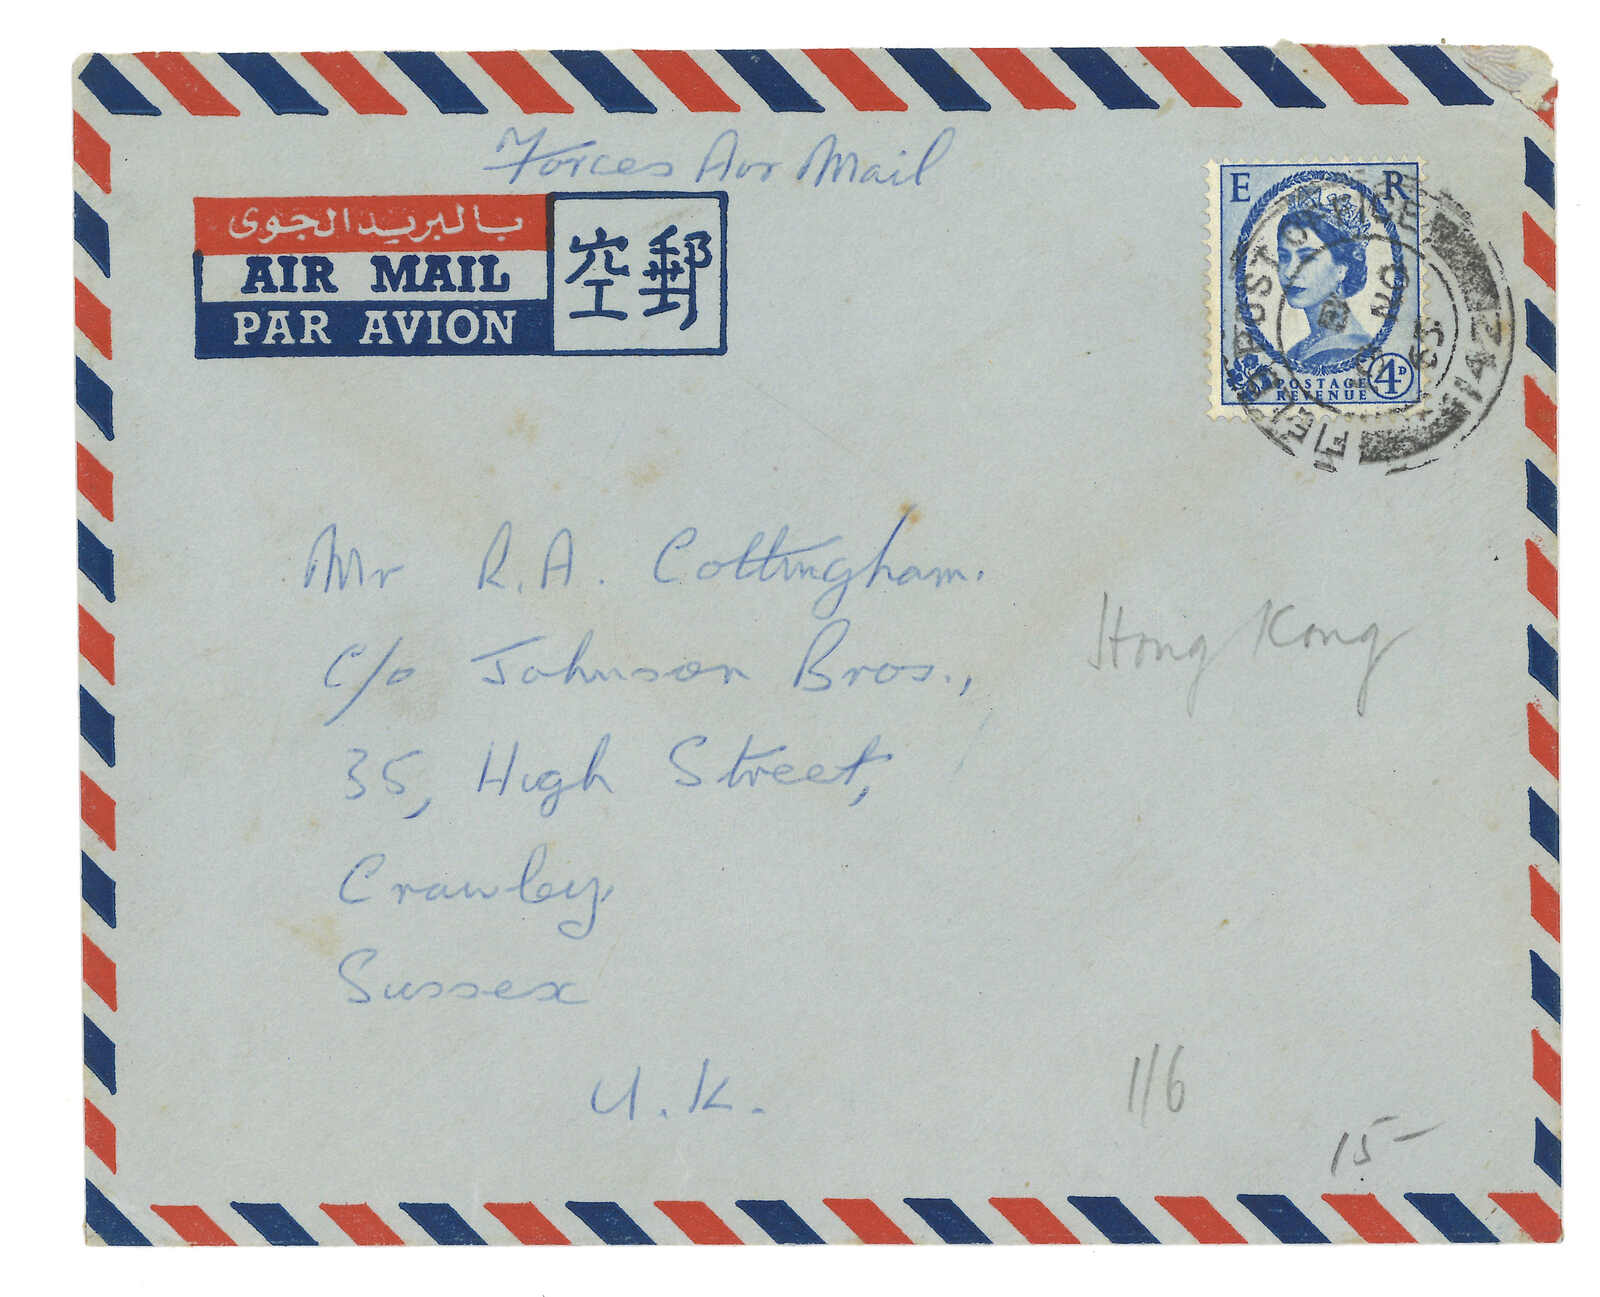 Forces Air Mail
بالبريد الجوى
AIR MAIL
PAR AVION
空郵
E R
POSTAGE
REVENUE
4D
FIELD POST OFFICE
1142
20
63
Mr R.A. Cottingham.
c/o Johnson Bros.,
35, High Street,
Crawley,
Sussex
U.K.
Hong Kong
1/6
15-